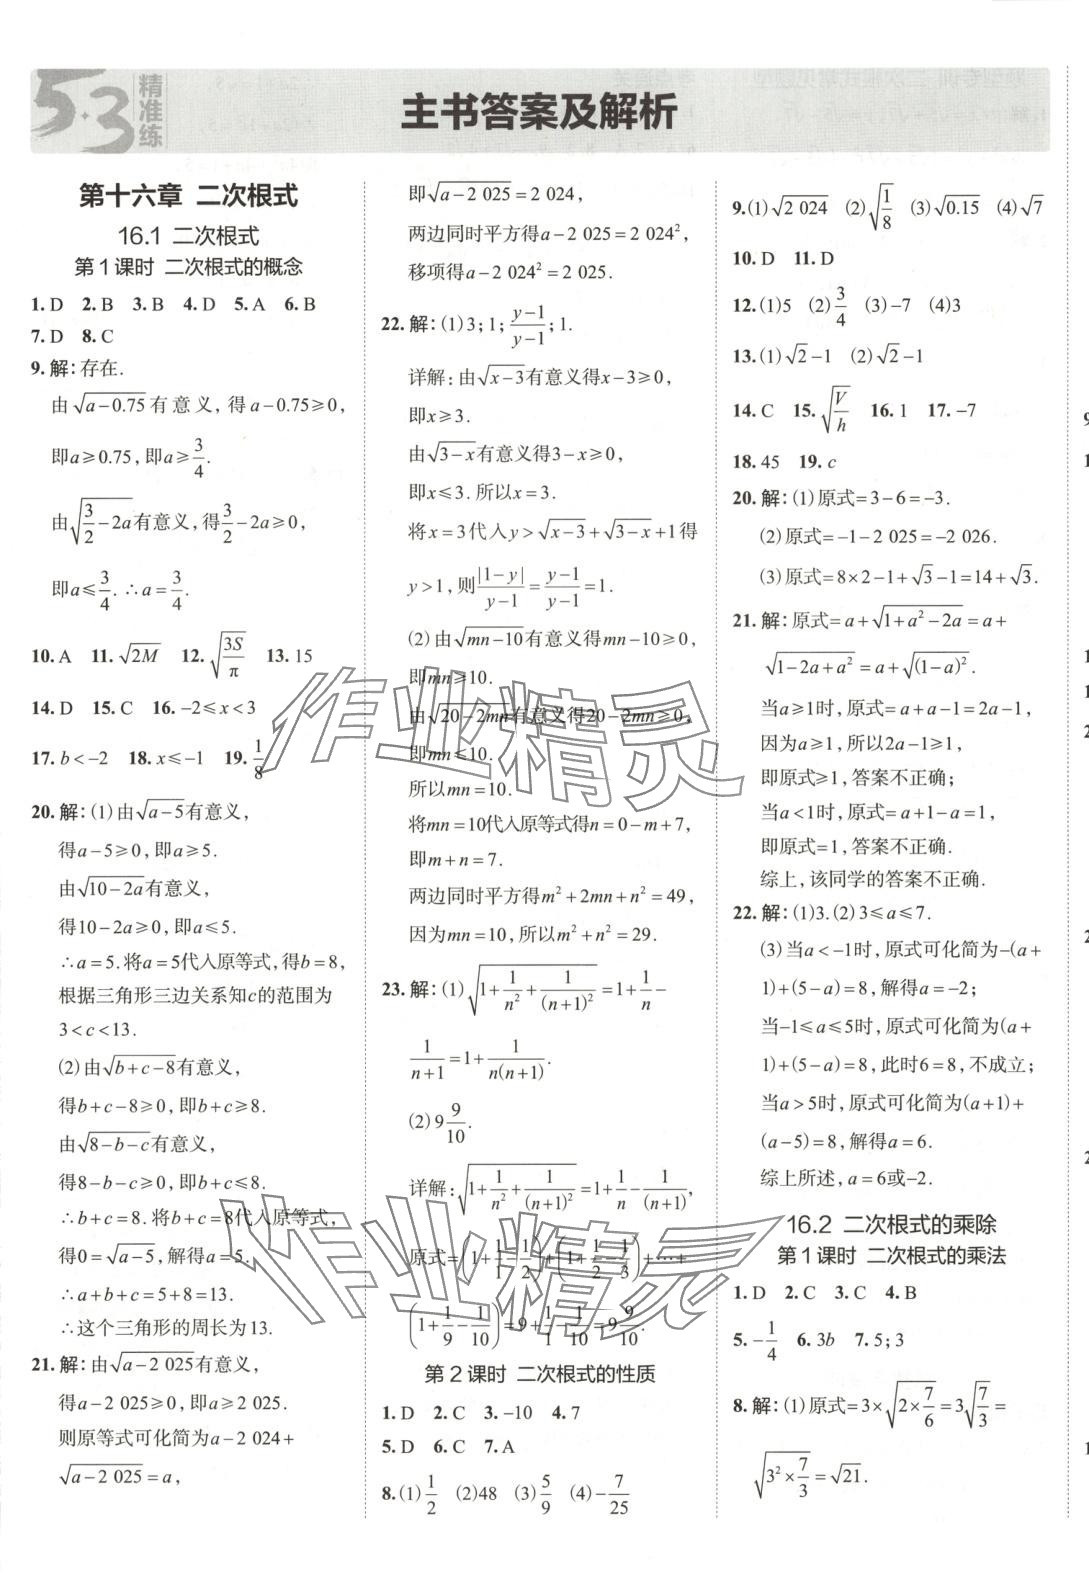 5·3
精准练
主书答案及解析
第十六章 二次根式
16.1 二次根式
第1课时 二次根式的概念
1. D 2. B 3. B 4. D 5. A 6. B
7. D 8. C
9. 解:存在.
由√(a-0.75)有意义,得a-0.75≥0,
即a≥0.75,即a≥3/4.
由√(3/2-2a)有意义,得3/2-2a≥0,
即a≤3/4.∴a=3/4.
10. A 11. √(2M) 12. √(3S/π) 13. 15
14. D 15. C 16. -2≤x<3
17. b<-2 18. x≤-1 19. 1/8
20. 解:(1)由√(a-5)有意义,
得a-5≥0,即a≥5.
由√(10-2a)有意义,
得10-2a≥0,即a≤5.
∴a=5.将a=5代入原等式,得b=8,
根据三角形三边关系知c的范围为
3<c<13.
(2)由√(b+c-8)有意义,
得b+c-8≥0,即b+c≥8.
由√(8-b-c)有意义,
得8-b-c≥0,即b+c≤8.
∴b+c=8.将b+c=8代入原等式,
得0=√(a-5),解得a=5.
∴a+b+c=5+8=13.
∴这个三角形的周长为13.
21. 解:由√(a-2 025)有意义,
得a-2 025≥0,即a≥2 025.
则原等式可化简为a-2 024+
√(a-2 025)=a,
即√(a-2 025)=2 024,
两边同时平方得a-2 025=2 024²,
移项得a-2 024²=2 025.
22. 解:(1)3;1;(y-1)/(y-1);1.
详解:由√(x-3)有意义得x-3≥0,
即x≥3.
由√(3-x)有意义得3-x≥0,
即x≤3.所以x=3.
将x=3代入y>√(x-3)+√(3-x)+1得
y>1,则|1-y|/(y-1)=(y-1)/(y-1)=1.
(2)由√(mn-10)有意义得mn-10≥0,
即mn≥10.
由√(20-2mn)有意义得20-2mn≥0,
即mn≤10.
所以mn=10.
将mn=10代入原等式得n=0-m+7,
即m+n=7.
两边同时平方得m²+2mn+n²=49,
因为mn=10,所以m²+n²=29.
23. 解:(1)√(1+1/n²+1/(n+1)²)=1+1/n-
1/(n+1)=1+1/(n(n+1)).
(2)9 9/10.
详解:√(1+1/n²+1/(n+1)²)=1+1/n-1/(n+1),
原式=(1+1/1-1/2)+(1+1/2-1/3)+…+
(1+1/9-1/10)=9+1/1-1/10=9 9/10.
第2课时 二次根式的性质
1. D 2. C 3. -10 4. 7
5. D 6. C 7. A
8. (1)1/2 (2)48 (3)5/9 (4)-7/25
9. (1)√(2 024) (2)√(1/8) (3)√0.15 (4)√7
10. D 11. D
12. (1)5 (2)3/4 (3)-7 (4)3
13. (1)√2-1 (2)√2-1
14. C 15. √(V/h) 16. 1 17. -7
18. 45 19. c
20. 解:(1)原式=3-6=-3.
(2)原式=-1-2 025=-2 026.
(3)原式=8×2-1+√3-1=14+√3.
21. 解:原式=a+√(1+a²-2a)=a+
√(1-2a+a²)=a+√((1-a)²).
当a≥1时,原式=a+a-1=2a-1,
因为a≥1,所以2a-1≥1,
即原式≥1,答案不正确;
当a<1时,原式=a+1-a=1,
即原式=1,答案不正确.
综上,该同学的答案不正确.
22. 解:(1)3.(2)3≤a≤7.
(3)当a<-1时,原式可化简为-(a+
1)+(5-a)=8,解得a=-2;
当-1≤a≤5时,原式可化简为(a+
1)+(5-a)=8,此时6=8,不成立;
当a>5时,原式可化简为(a+1)+
(a-5)=8,解得a=6.
综上所述,a=6或-2.
16.2 二次根式的乘除
第1课时 二次根式的乘法
1. D 2. C 3. C 4. B
5. -1/4 6. 3b 7. 5;3
8. 解:(1)原式=3×√(2×7/6)=3√(7/3)=
√(3²×7/3)=√21.
作业精灵
作业精灵